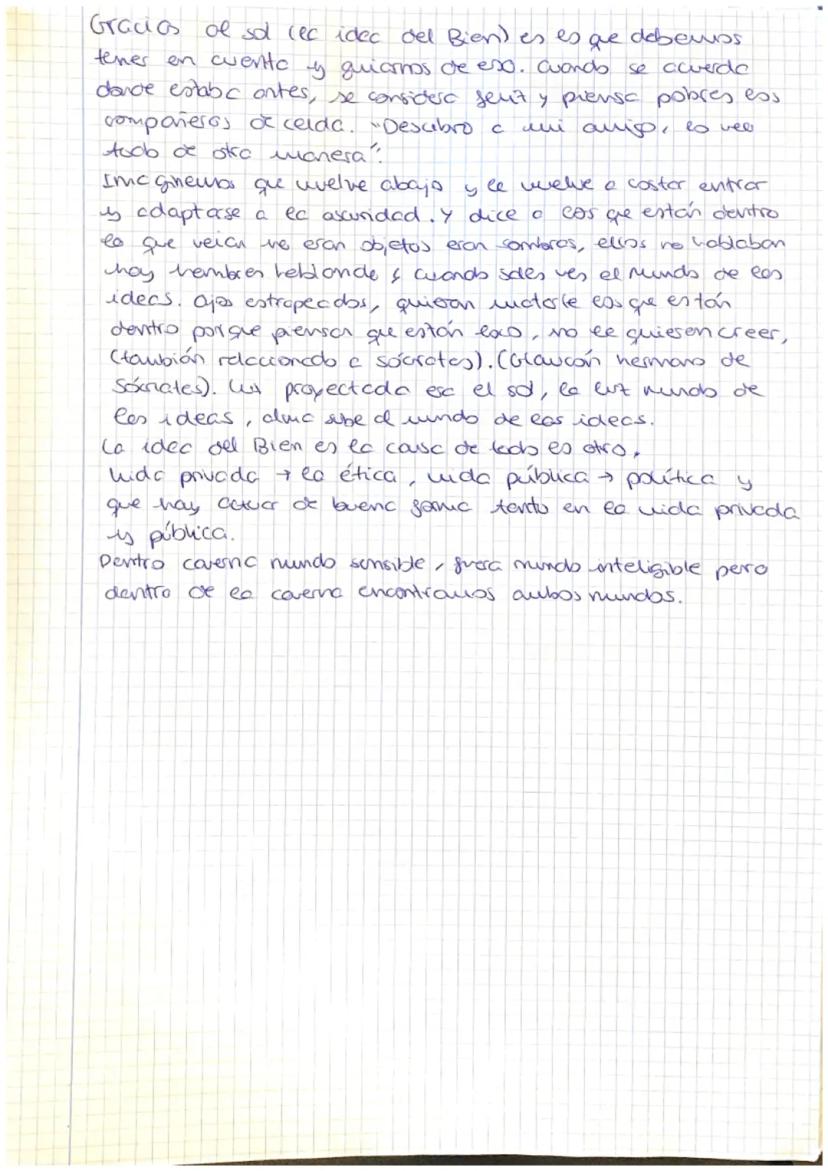 Gracias al sol (la idea del Bien) es lo que debemos
tener en cuenta y guiarnos de eso. Cuando se acuerda
donde estaba antes, se considera feliz y piensa pobres los
compañeros de celda. "Descubro a mi amigo, lo veo
todo de otra manera".
Imaginemos que vuelve abajo y le vuelve a costar entrar
y adaptarse a la oscuridad. Y dice a los que están dentro
lo que veían no eran objetos eran sombras, ellos no hablaban
hay hombres hablando y cuando sales ves el mundo de las
ideas. Ojos estropeados, quieran matarle los que están
dentro porque piensan que están loco, no le quieren creer,
(también relacionado a Sócrates). (Glaucón hermano de
Sócrates). Luz proyectada era el sol, la luz mundo de
las ideas, alma sube al mundo de las ideas.
La idea del Bien es la causa de todo lo otro.
Vida privada → la ética, vida pública → política y
que hay actuar de buena forma tanto en la vida privada
y pública.
Dentro caverna mundo sensible, fuera mundo inteligible pero
dentro de la caverna encontramos ambos mundos.